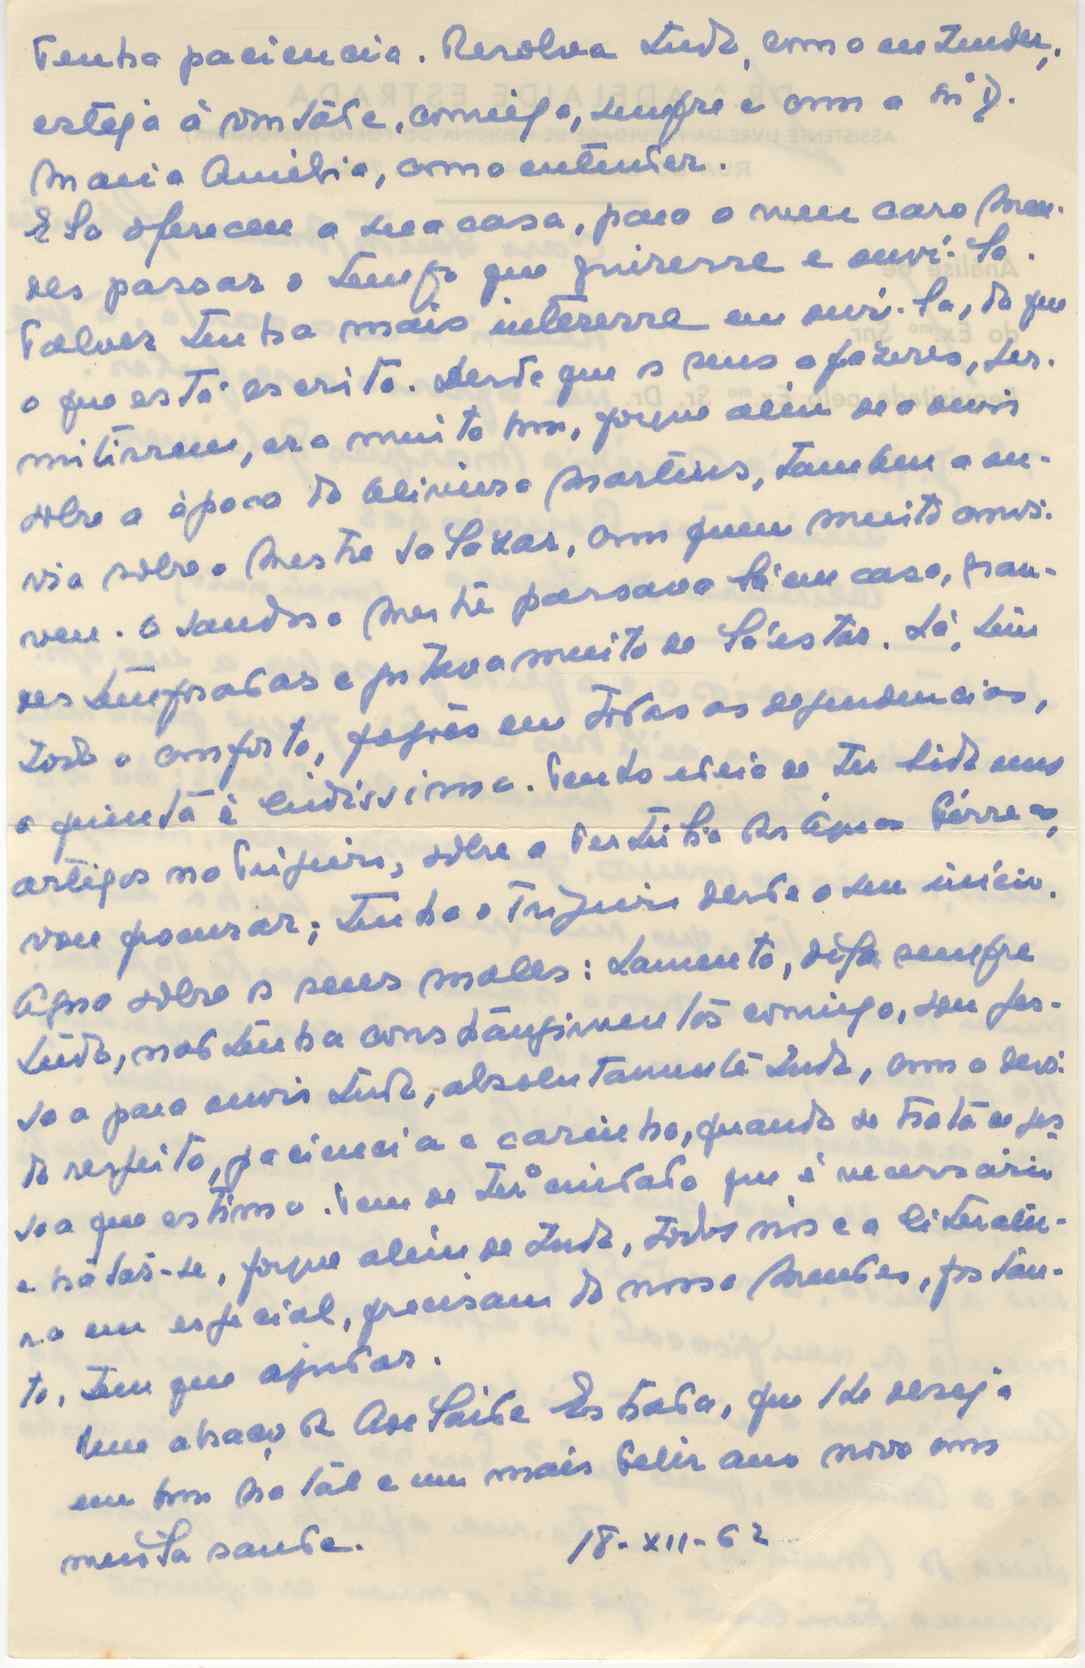 Tenha paciencia. Resolva tudo, como entender,
esteja à vontáde, comigo, sempre e com a Srª D.
Maria Amélia, como entender.
Ela oferecem a sua casa, para o meu caro Men-
des passar o tempo que quizesse e ouvi-la.
Talvez tenha mais interesse em ouvi-la, do que
o que está escrito. Desde que os seus afazeres, per-
mitissem, era muito bom, porque além de a ouvir
sobre a época do Oliveira Martins, tambem a ou-
via sobre o Mestre Salazar, com quem muito convi-
veu. O saudoso Mestre passava lá em casa, gran-
des temporadas e gostava muito de lá estar. Lá, têm
todo o conforto, fogões em todas as dependencias,
a quinta é lindissima. Tendo ideia de ter lido uns
artigos no Tripeiro, sôbre a Tertulia das Águas Férreas,
vou procurar; tenho o Tripeiro desde o seu inicio.
Agora sôbre os seus males: Lamento, diga sempre
tudo, não tenha constangimentos comigo, sou pes-
soa para ouvir tudo, absolutamente tudo, com o devi-
do respeito, paciencia e carinho, quando se trata de pes-
soa que estimo. Tem de ter o cuidado que é necessário
e tratár-se, porque além de tudo, todos nós e a literatu-
ra em especial, precisam do nosso Mendes, portan-
to, tem que ajudar.
Um abraço da Adelaide Estrada, que lhe deseja
um bom Natál e um mais Feliz ano novo com
muita saude. 18-XII-62